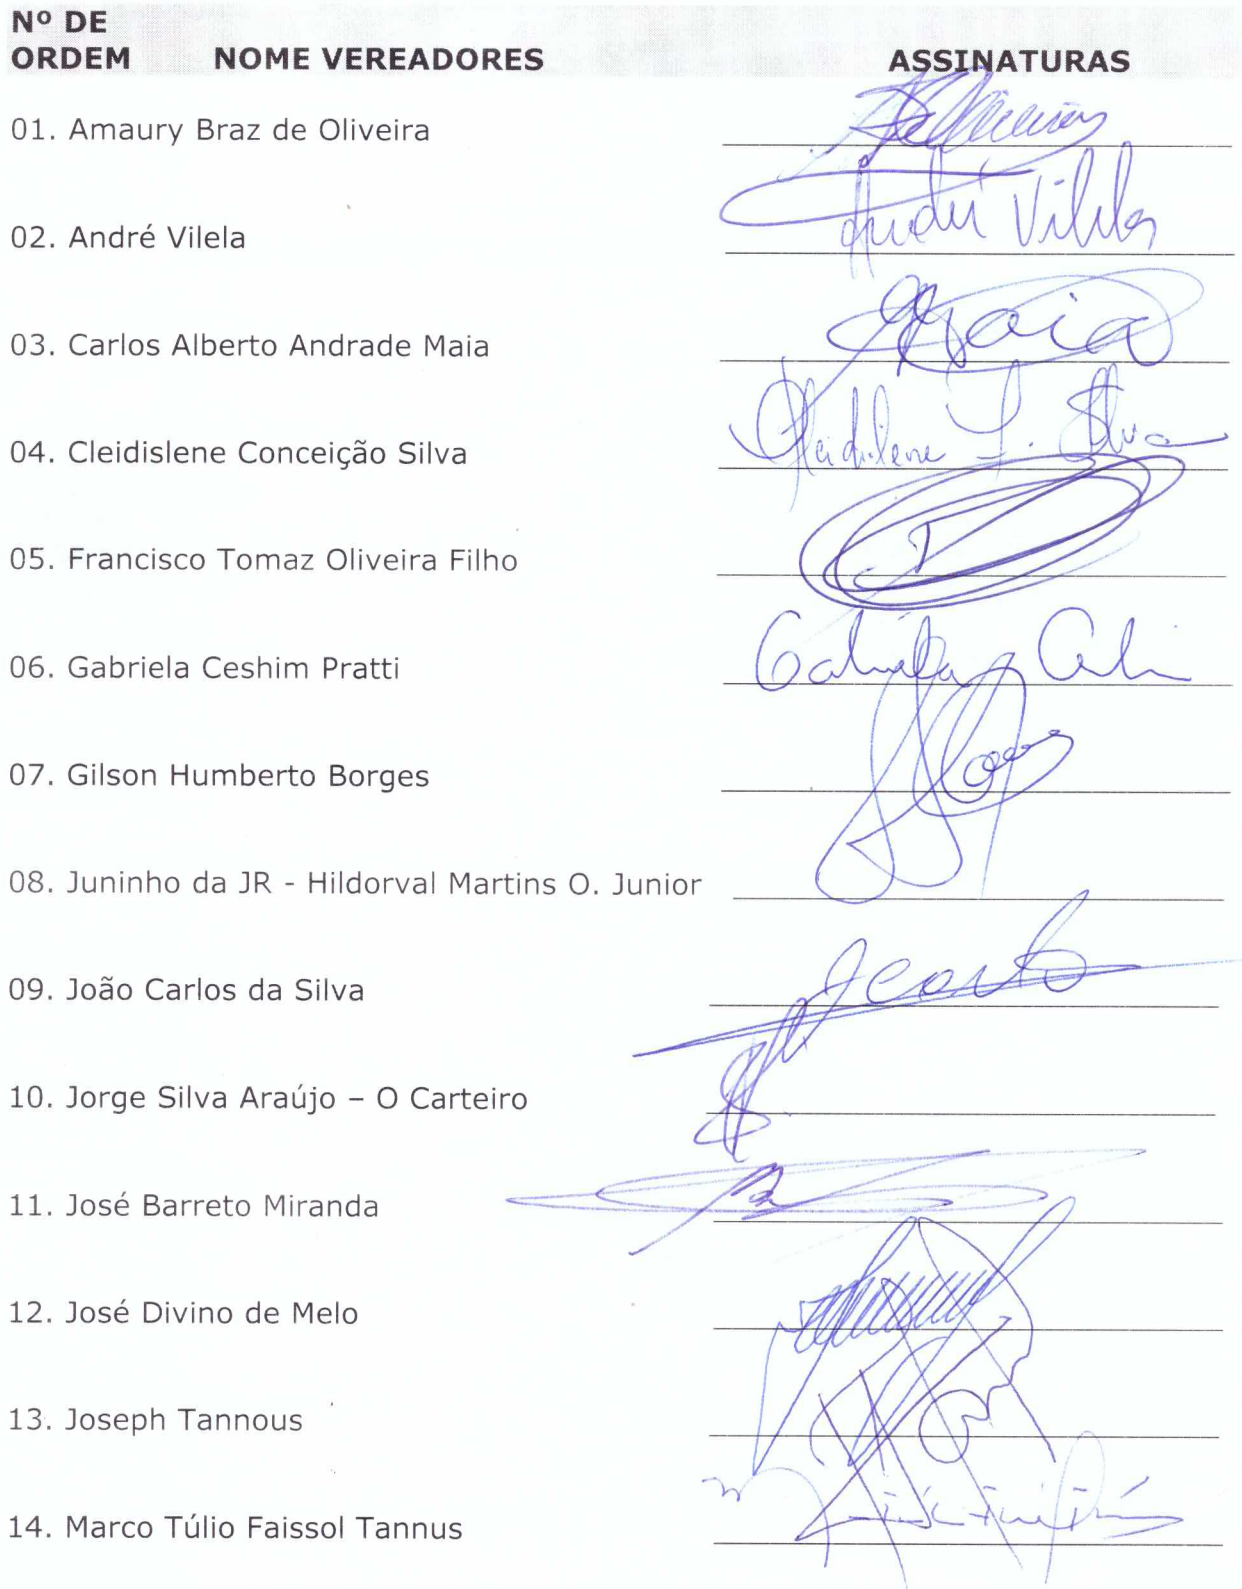 Nº DE
ORDEM NOME VEREADORES ASSINATURAS
01. Amaury Braz de Oliveira
02. André Vilela André Vilela
03. Carlos Alberto Andrade Maia Maia
04. Cleidislene Conceição Silva Cleidislene Silva
05. Francisco Tomaz Oliveira Filho
06. Gabriela Ceshim Pratti Gabriela
07. Gilson Humberto Borges
08. Juninho da JR - Hildorval Martins O. Junior
09. João Carlos da Silva
10. Jorge Silva Araújo – O Carteiro
11. José Barreto Miranda
12. José Divino de Melo
13. Joseph Tannous
14. Marco Túlio Faissol Tannus